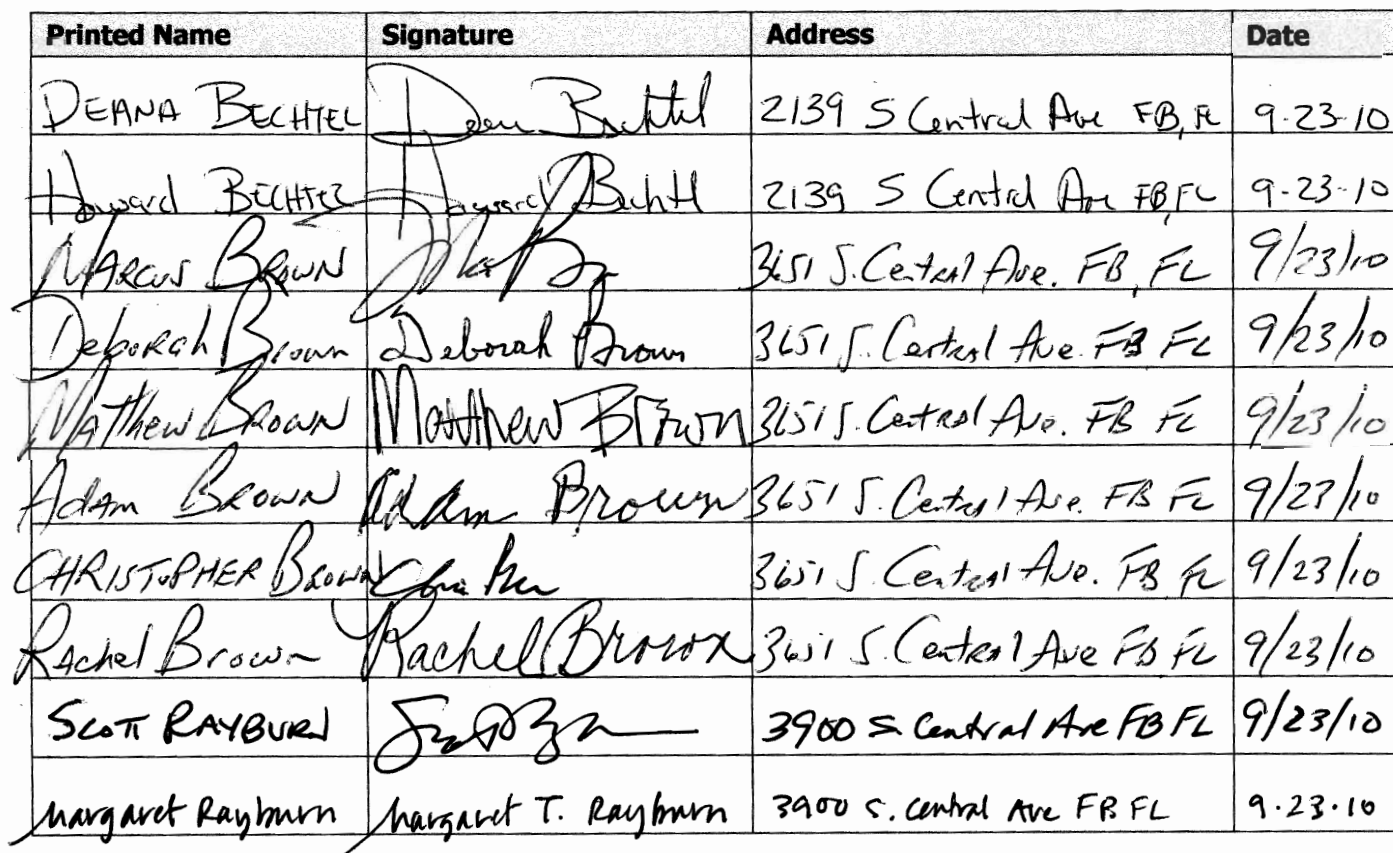 Printed Name Signature Address Date
DEANA BECHTEL Dean Bechtel 2139 S Central Ave FB, FL 9-23-10
Howard BECHTEL Howard Bechtl 2139 S Central Ave FB, FL 9-23-10
MARCUS BROWN 3651 S. Central Ave. FB, FL 9/23/10
Deborah Brown Deborah Brown 3651 S. Central Ave. FB FL 9/23/10
Matthew BROWN Matthew Brown 3651 S. Central Ave. FB FL 9/23/10
Adam BROWN Adam Brown 3651 S. Central Ave. FB FL 9/23/10
CHRISTOPHER BROWN 3651 S. Central Ave. FB, FL 9/23/10
Rachel Brown Rachel Brown 3651 S. Central Ave FB FL 9/23/10
SCOTT RAYBURN 3900 S Central Ave FB FL 9/23/10
Margaret Rayburn Margaret T. Rayburn 3900 S. Central Ave FB FL 9.23.10